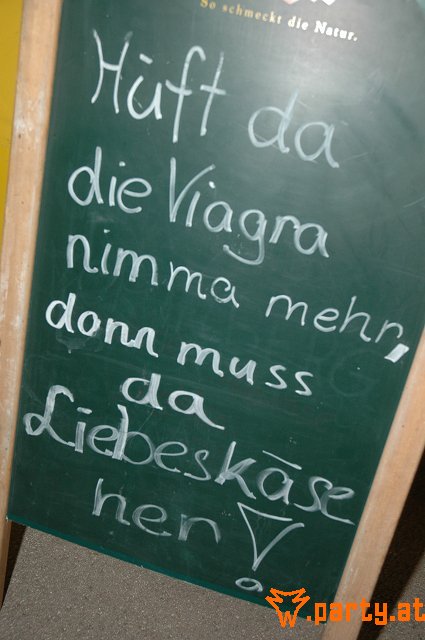 So schmeckt die Natur.
Hüft da
die Viagra
nimma mehr,
donn muss
da
Liebeskäse
her!
.party.at